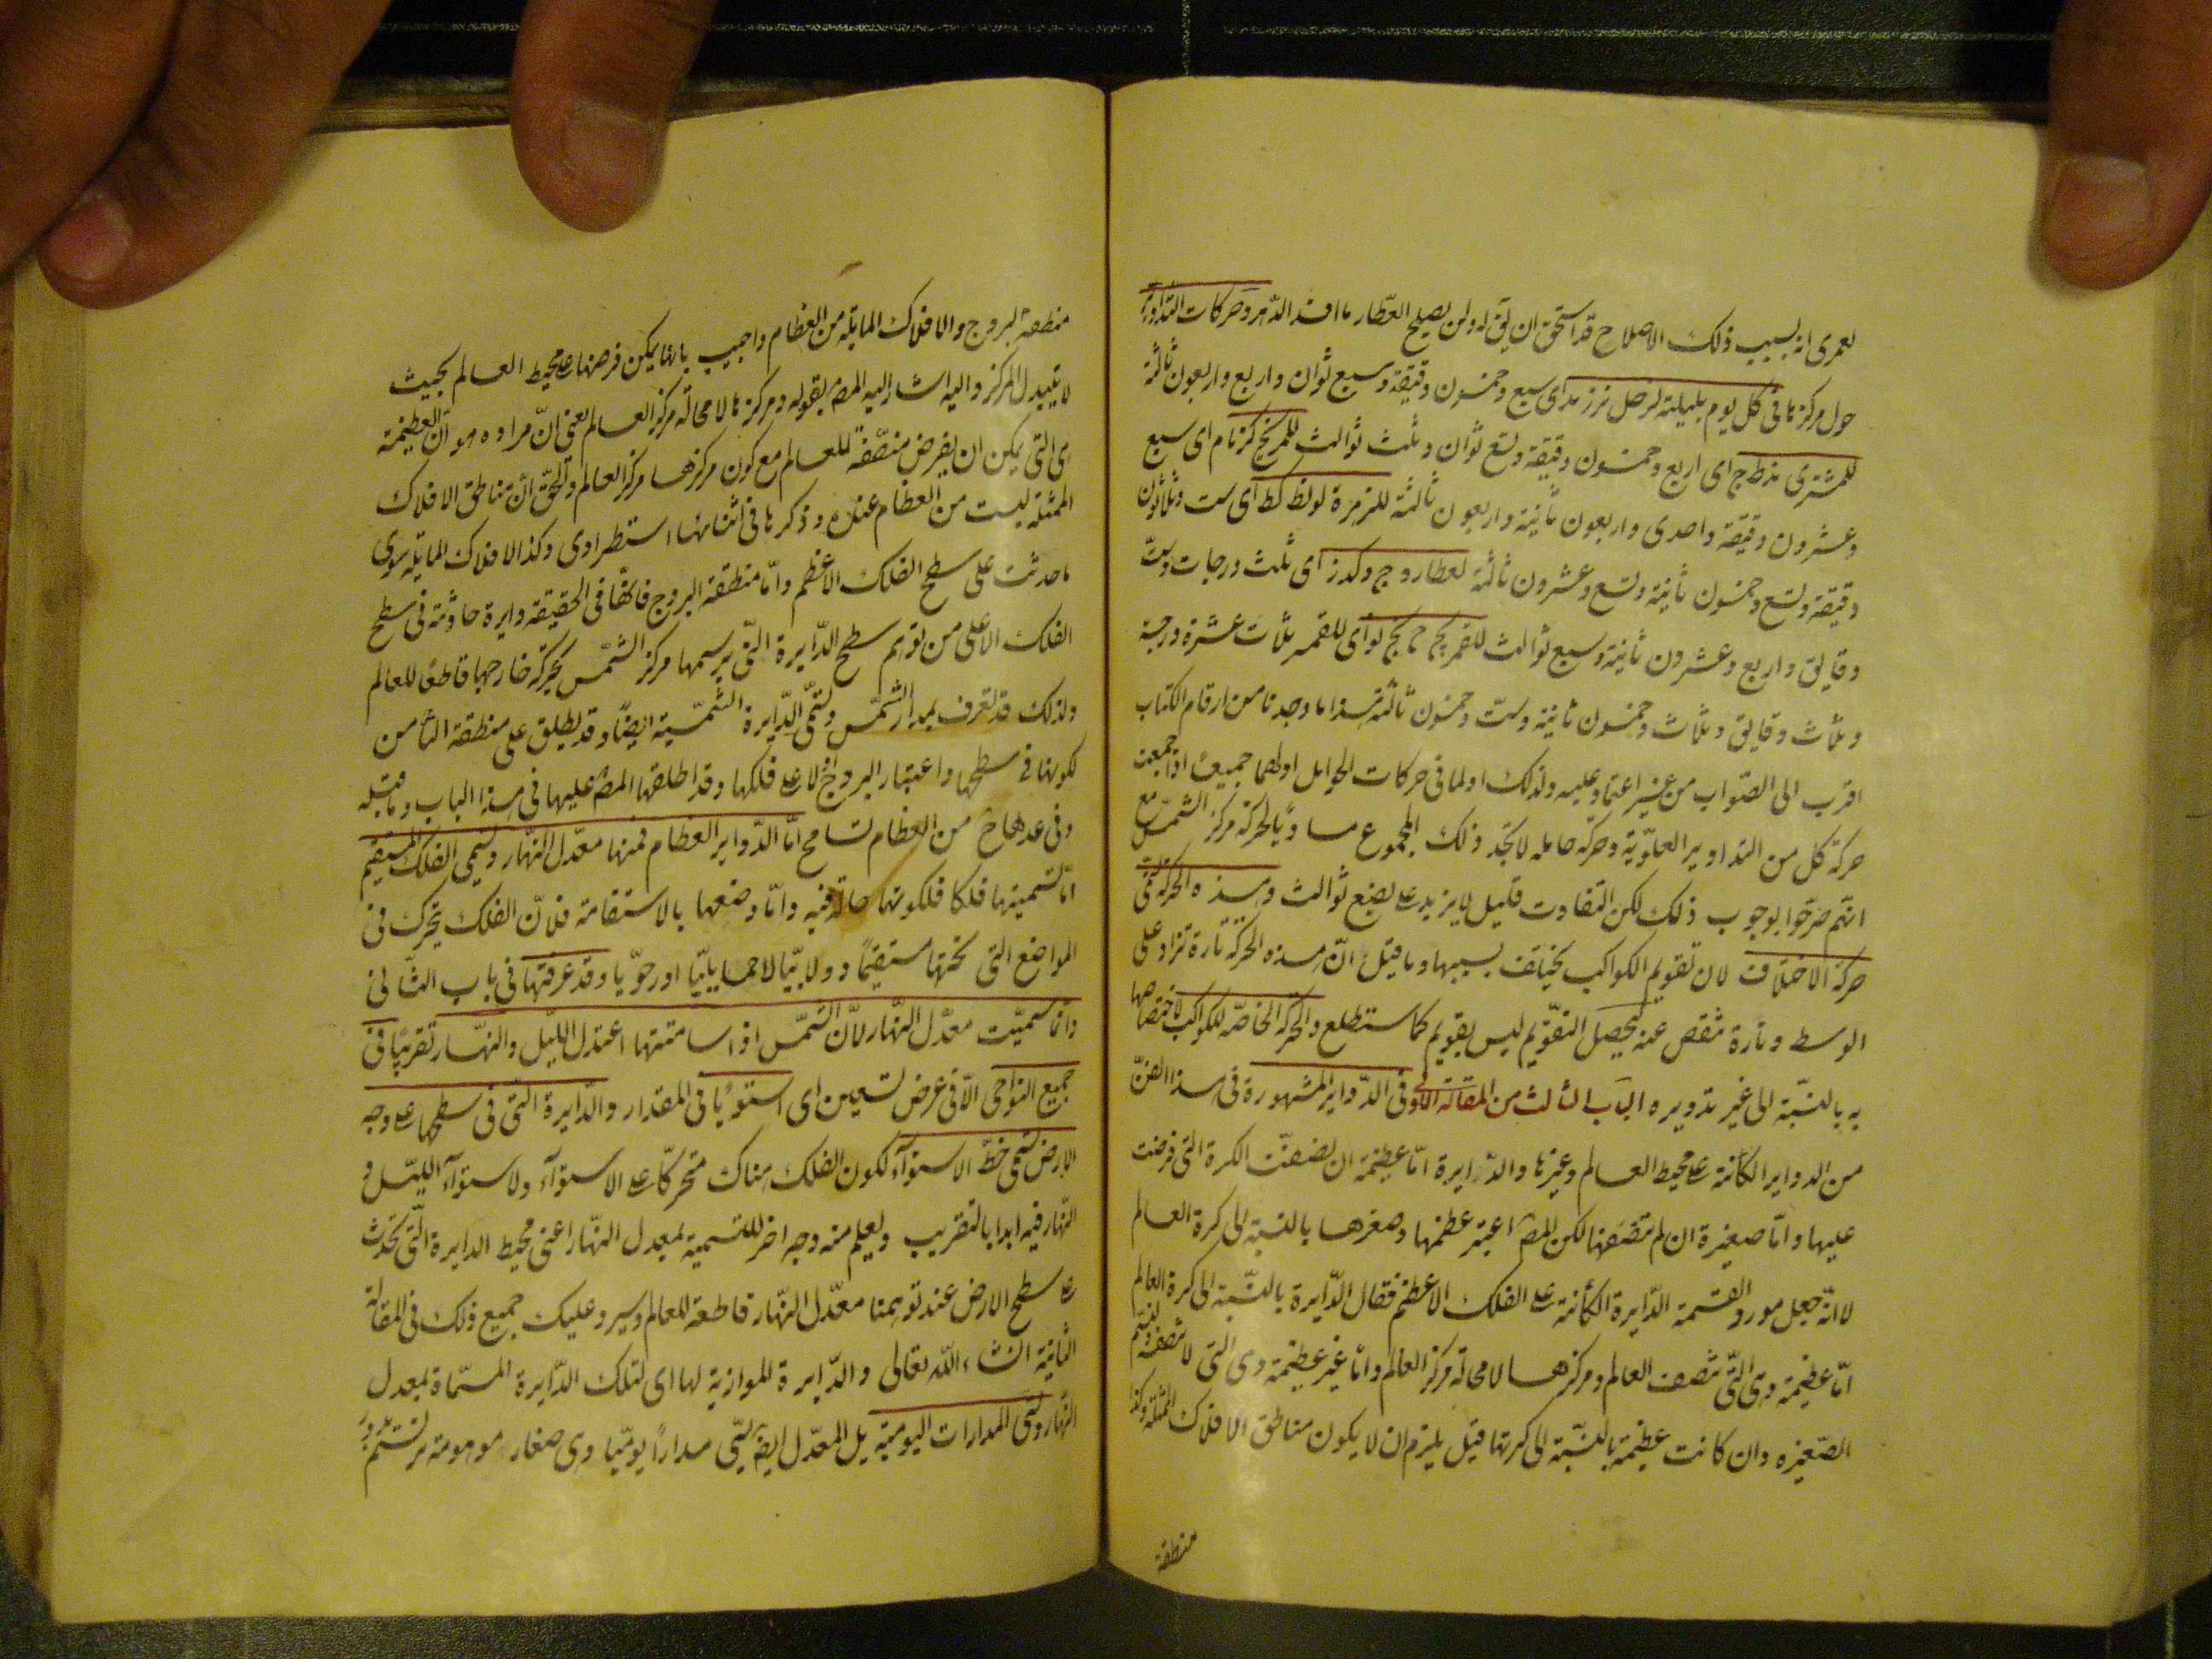 لعمرى انه بسبب ذلك الاصلاح قد استحق ان يق له ولن يصلح العطّار ما افسد الدّهر وحركات التداوير
حول مركزها فى كل يوم بليلته لزحل نزز مد اى سبع وخمسون دقيقة وسبع ثوان واربع واربعون ثالثة
للمشترى ند ط ج اى اربع وخمسون دقيقة وتسع ثوان وثلث ثوالث للمريخ كز ما م اى سبع
وعشرون دقيقة واحدى واربعون ثانية واربعون ثالثة للزهرة لو نط كط اى ست وثلاثون
دقيقة وتسع وخمسون ثانية وتسع وعشرون ثالثة لعطارد ج و كد ز اى ثلث درجات وست
دقايق واربع وعشرون ثانية وسبع ثوالث للقمر يج ج نج نو اى للقمر ثلاث عشرة درجة
وثلاث دقايق وثلاث وخمسون ثانية وست وخمسون ثالثة هذا ما وجدنا من ارقام الكتاب
اقرب الى الصّواب من غير اعتماد عليه ولذلك اولما فى حركات الحوامل اولهما جميعا اذا جمعت
حركة كل من التداوير العلويّة وحركة حامله لا تجد ذلك المجموع مساويًا لحركة مركز الشمس مع
انّهم صرّحوا بوجوب ذلك لكن التفاوت قليل لا يزيد على بضع ثوالث وهذه الحركة تسمّى
حركة الاختلاف لان تقويم الكواكب يختلف بسببها وما قيل انّ هذه الحركة تارة تزاد على
الوسط وتارة تنقص عنه ليحصل التقويم ليس بقويم كما ستطلع والحركة الخاصّة للكواكب لاختصاصها
به بالنسّبة الى غير تدويره الباب الثالث من المقالة الاولى فى الدّواير المشهورة فى هذا الفنّ
من الدواير الكائنة على محيط العالم وغيرها والدّايرة امّا عظيمة ان نصفت الكرة التى فرضت
عليها وامّا صغيرة ان لم تنصفها لكن المص اعتبر عظمها وصغرها بالنسبة الى كرة العالم
لانّه جعل مورد القسمة الدّايرة الكائنة على الفلك الاعظم فقال الدّايرة بالنسّبة الى كرة العالم
امّا عظيمة وهى التّى تنصف العالم ومركزهـا لا محالة مركز العالم وامّا غير عظيمة وهى التى لا تنصفه
الصّغيره وان كانت عظيمة بالنسّبة الى كرتها قيل يلزم ان لا يكون مناطق الافلاك الممثلة وكذا
منطقة
منطقة البروج والافلاك المايلة من العظام واجيب بانها يمكن فرضها على محيط العالم بحيث
لا يتبدل المركز واليه اشار اليه المص بقوله ومركزها لا محالة مركز العالم يعنى انّ مراده هو انّ العظيمة
هى التى يمكن ان يفرض منصّفة للعالم مع كون مركزهـا مركز العالم والحقّ انّ مناطق الافلاك
الممثلة ليست من العظام عنده وذكرها فى اثنائها استطرادى وكذا الافلاك المايلة سوى
ما حدثت على سطح الفلك الاعظم وامّا منطقة البروج فانّها فى الحقيقة دايرة حادثة فى سطح
الفلك الاعلى من توهم سطح الدّايرة التّى يرسمها مركز الشمس بحركة خارجها قاطعًا للعالم
ولذلك قد تعرف بمدار الشمّس وتسمّى الدّايرة الشمسّية ايضًا وقد يطلق على منطقة الثامن
لكونها فى سطحها واعتبار البروج لا على فلكها وقد اطلقها المص عليها فى هذا الباب وما قبله
وفى عدهاح من العظام تسامح امّا الدّواير العظام فمنها معدّل النّهار وتسمى الفلك المستقيم
امّا تسميتها فلكا فلكونها حالّة فيه وامّا وضعها بالاستقامة فلانّ الفلك يتحرك فى
المواضع التى تحتها مستقيمًا دولابيّا لا حمايليّا او رحويّا وقد عرفتها فى باب الثانى
وانما سميّت معدّل النّهار لانّ الشمّس اذا سامتتها اعتدل الليّل والنهّار تقريبًا فى
جميع النواحى الّا فى عرض تسعين اى استويا فى المقدار والدّايرة التّى فى سطحها على وجه
الارض تسمى خطّ الاستوآء لكون الفلك هناك متحركًا على الاستوآء ولاستوآء الليّل و
النّهار فيه ابدا بالتقريب ويعلم منه وجه اخر للتسمية بمعدل النّهار اعنى محيط الدايرة التّى تحدث
على سطح الارض عند توهمنا معدّل النّهار قاطعة للعالم وسيرد عليك جميع ذلك فى المقالة
الثانية انشاء اللّه تعالى والدّايرة الموازية لها اى لتلك الدّايرة المسمّاة بمعدل
النهار وتسمى المدارات اليوميّة بل المعدّل ايضا يسمّى مدارًا يوميّا وهى صغار موهومة ترتسم